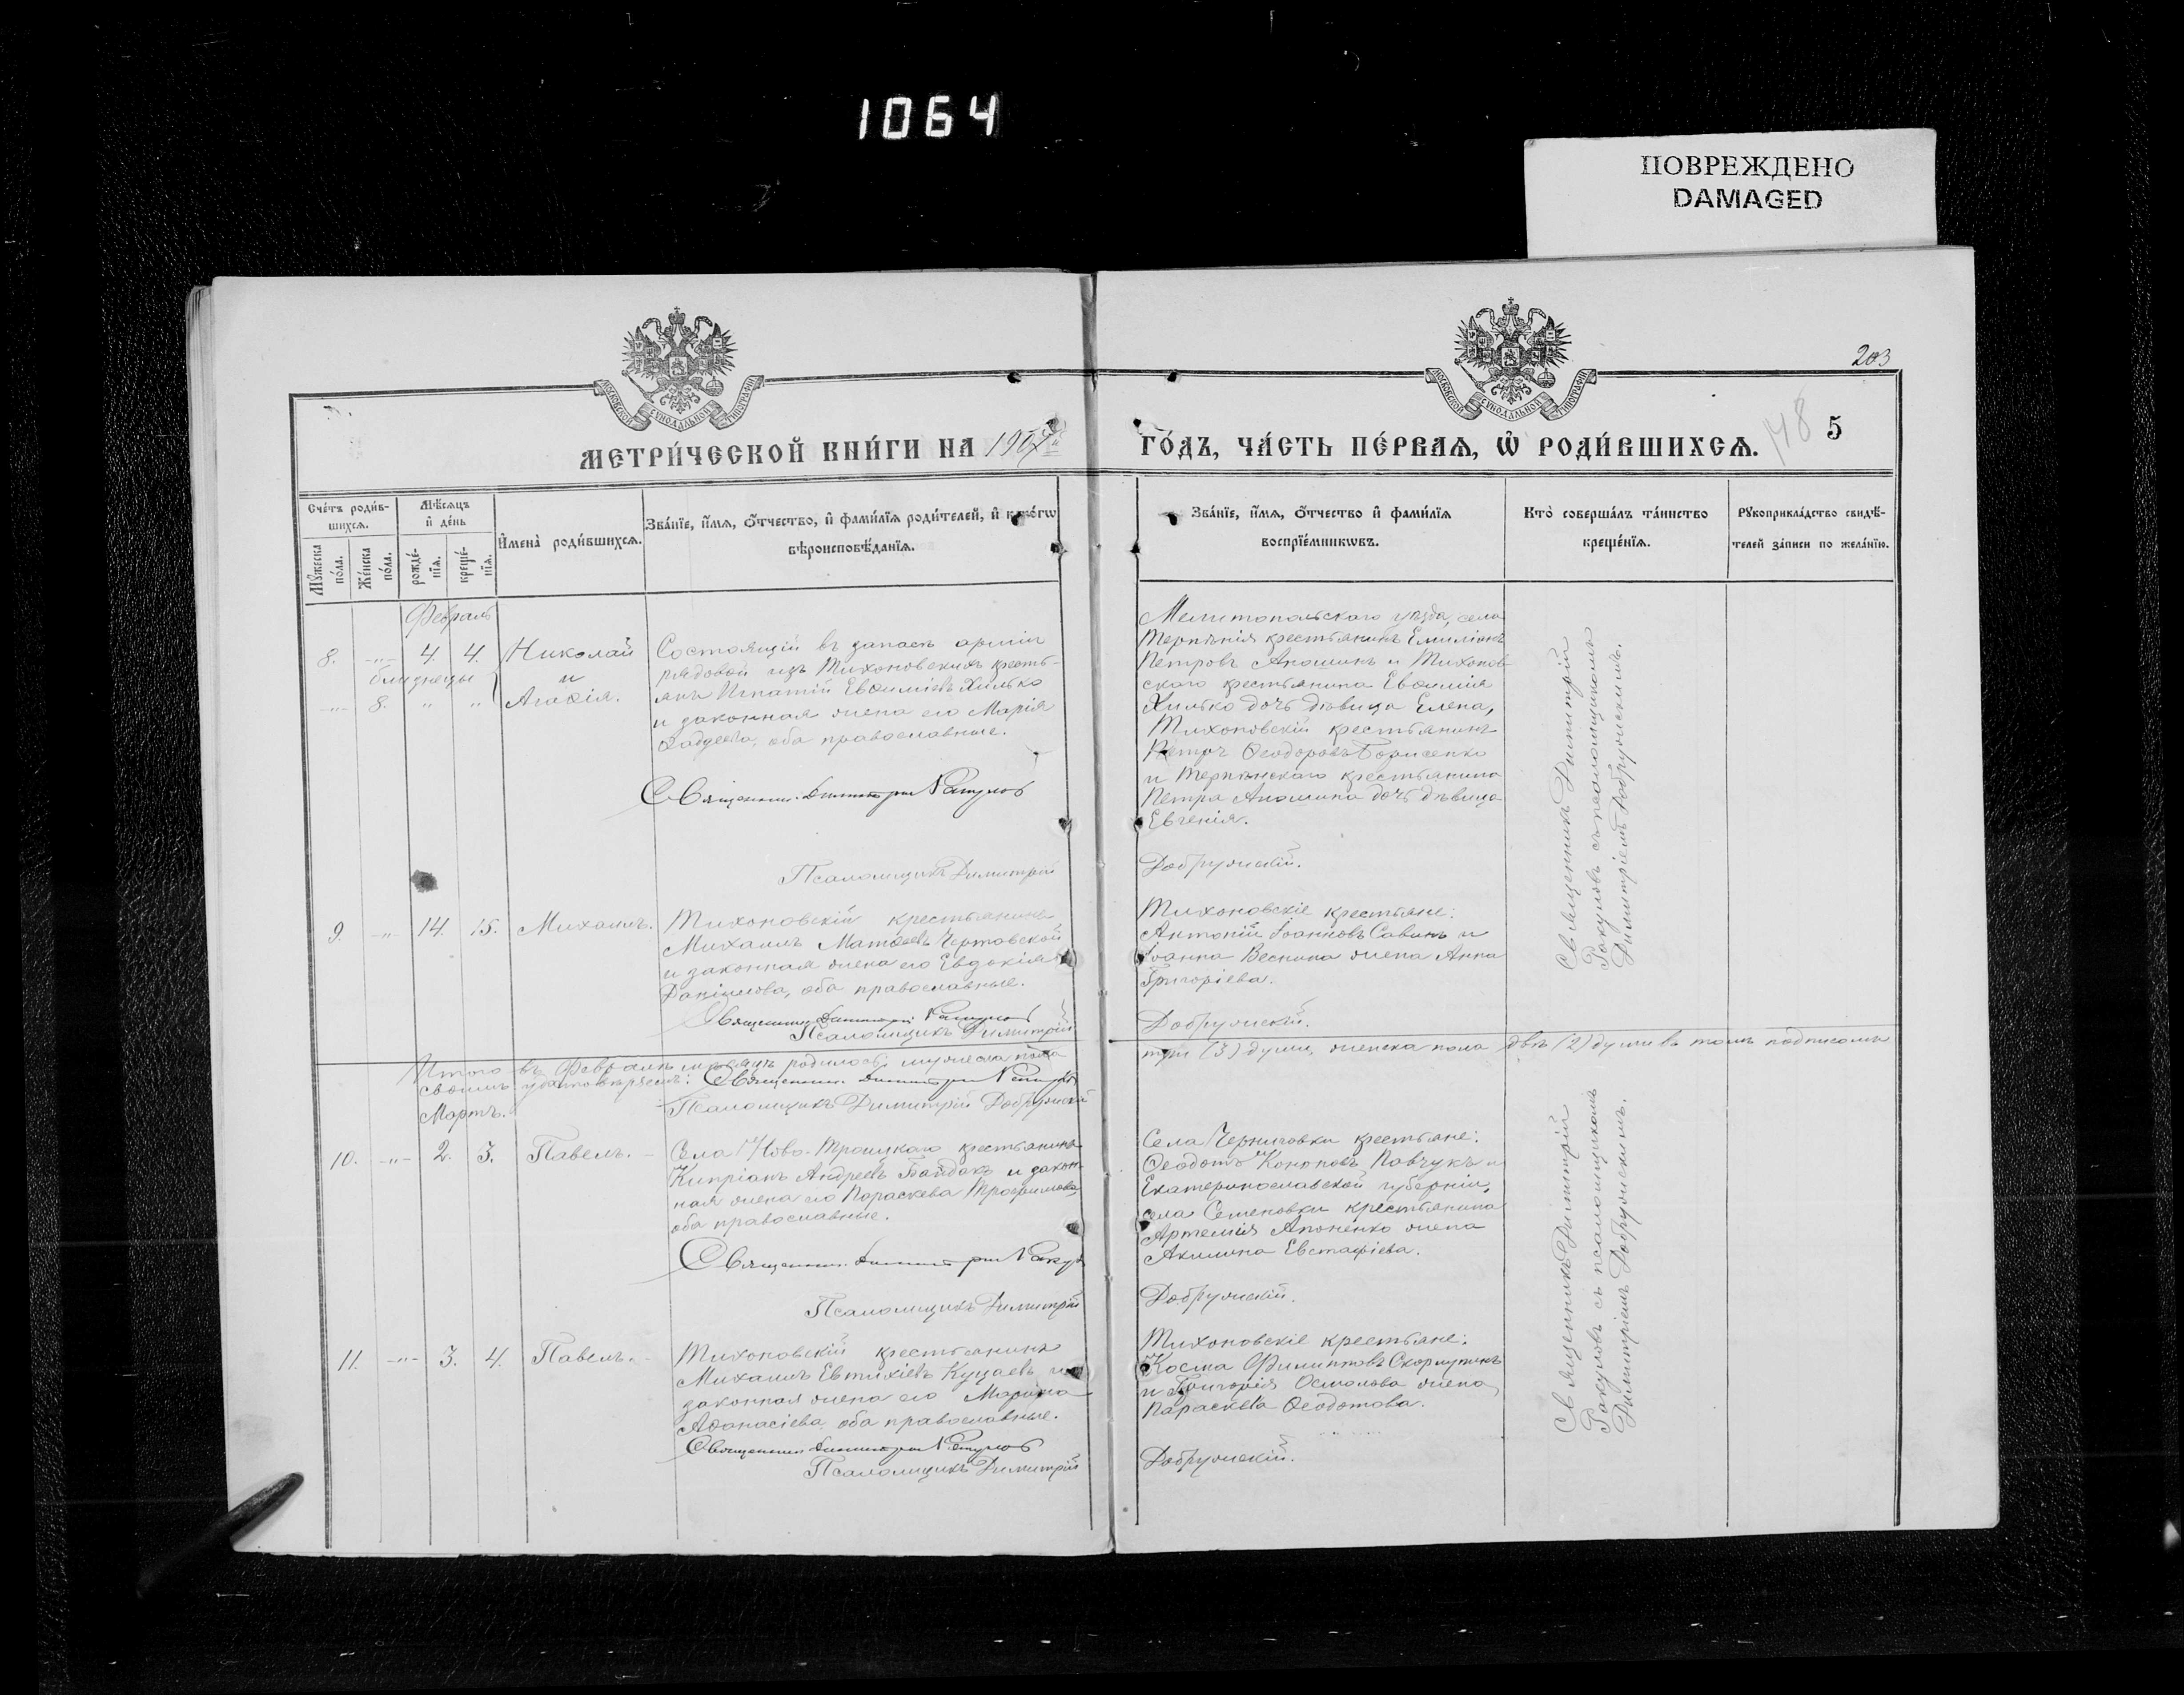 1064
ПОВРЕЖДЕНО
DAMAGED
203
148
5
МОСКОВСКОЙ СѴНОДАЛЬНОЙ ТИПОГРАФІИ
МОСКОВСКОЙ СѴНОДАЛЬНОЙ ТИПОГРАФІИ
МЕТРИ́ЧЕСКОЙ КНИ́ГИ НА 1907й
ГО́ДЪ, ЧА́СТЬ ПЕ́РВАѦ, Ѡ РОДИ́ВШИХСѦ.
Сче́тъ роди́в-
шихсѧ.
Мꙋжеска по́ла.
Же́нска по́ла.
Мѣ́сѧцъ
и҆ де́нь
рожде́-
нїѧ.
креще́-
нїѧ.
И҆мена̀ роди́вшихсѧ.
Зва́нїе, и҆́мѧ, ѻ҆́тчество, и҆ фами́лїѧ роди́телей, и҆ како́гѡ
вѣроисповѣ́данїѧ.
Зва́нїе, и҆́мѧ, ѻ҆́тчество и҆ фами́лїѧ
воспрїе́мникѡвъ.
Кто̀ соверша́лъ та́инство
креще́нїѧ.
Рꙋкоприкла́дство свидѣ́-
телей за́писи по жела́нїю.
Февраль
8. -„- 4. 4. Николай
близнецы и
-„- 8. „ „ Агаѳія.
Состоящій въ запасѣ арміи
рядовой изъ Тихоновскихъ кресть-
янъ Игнатій Евѳиміевъ Хилько
и законная жена его Марія
Ѳаддеева, оба православные.
Священникъ Димитрій Ракуловъ
Псаломщикъ Димитрій
Мелитопольскаго уѣзда, села
Терпѣнія крестьянинъ Емиліанъ
Петровъ Аношинъ и Тихонов-
скаго крестьянина Евѳимія
Хилько дочь дѣвица Елена,
Тихоновскій крестьянинъ
Петръ Ѳеодоровъ Борисенко
и Терпѣнскаго крестьянина
Петра Аношина дочь дѣвица
Евгенія.
Добружскій.
Священникъ Димитрій
Ракуловъ съ псаломщикомъ
Димитріемъ Добружскимъ.
9. -„- 14. 15. Михаилъ.
Тихоновскій крестьянинъ
Михаилъ Матѳеевъ Чертовской
и законная жена его Евдокія
Даніилова, оба православные.
Священникъ Димитрій Ракуловъ
Псаломщикъ Димитрій
Тихоновскіе крестьяне:
Антоній Іоанновъ Савинъ и
Іоанна Веснина жена Анна
Григоріева.
Добружскій.
Итого въ Февралѣ мѣсяцѣ родилось: мужеска пола
три (3) души, женска пола двѣ (2) души въ томъ подписомъ
своимъ удостовѣряемъ: Священникъ Димитрій Ракуловъ
Псаломщикъ Димитрій Добружскій
Мартъ.
10. -„- 2. 3. Павелъ.
Села Ново-Троицкаго крестьянинъ
Кипріанъ Андреевъ Байдакъ и закон-
ная жена его Параскева Трофимова,
оба православные.
Священникъ Димитрій Ракул
Псаломщикъ Димитрій
Села Черниговки крестьяне:
Ѳеодотъ Кононовъ Павчукъ и
Екатеринославской губерніи,
села Семеновки крестьянина
Артемія Апоненко жена
Акилина Евстафіева.
Добружскій.
Священникъ Димитрій
Ракуловъ съ псаломщикомъ
Димитріемъ Добружскимъ.
11. -„- 3. 4. Павелъ.
Тихоновскій крестьянинъ
Михаилъ Евтихіевъ Куцаевъ и
законная жена его Марина
Аѳанасіева, оба православные.
Священникъ Димитрій Ракуловъ
Псаломщикъ Димитрій
Тихоновскіе крестьяне:
Косма Филипповъ Скорлупинъ
и Григорія Осмолова жена
Параскева Ѳеодотова.
Добружскій.